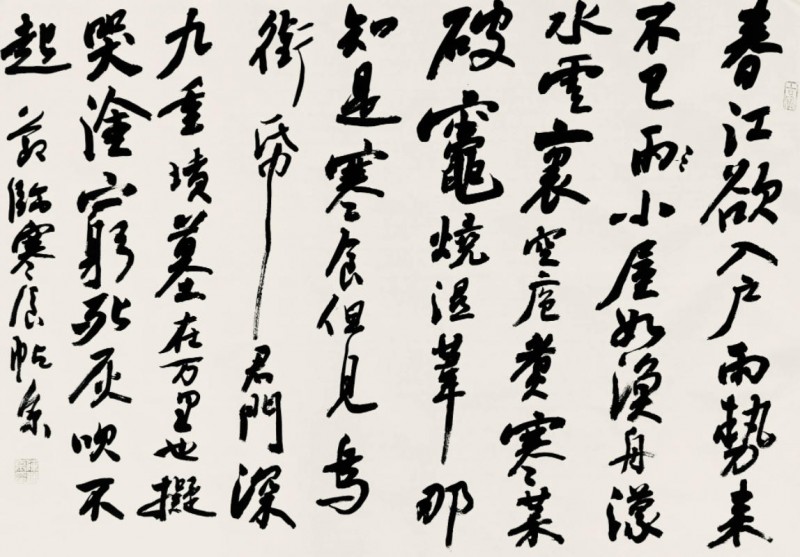 春江欲入戶雨勢来
不已雨小屋如漁舟濛
水雲裏空庖煮寒菜
破竈燒湿葦那
知是寒食但見烏
銜帋君門深
九重墳墓在万里也擬
哭塗窮死灰吹不
起 臨寒食帖